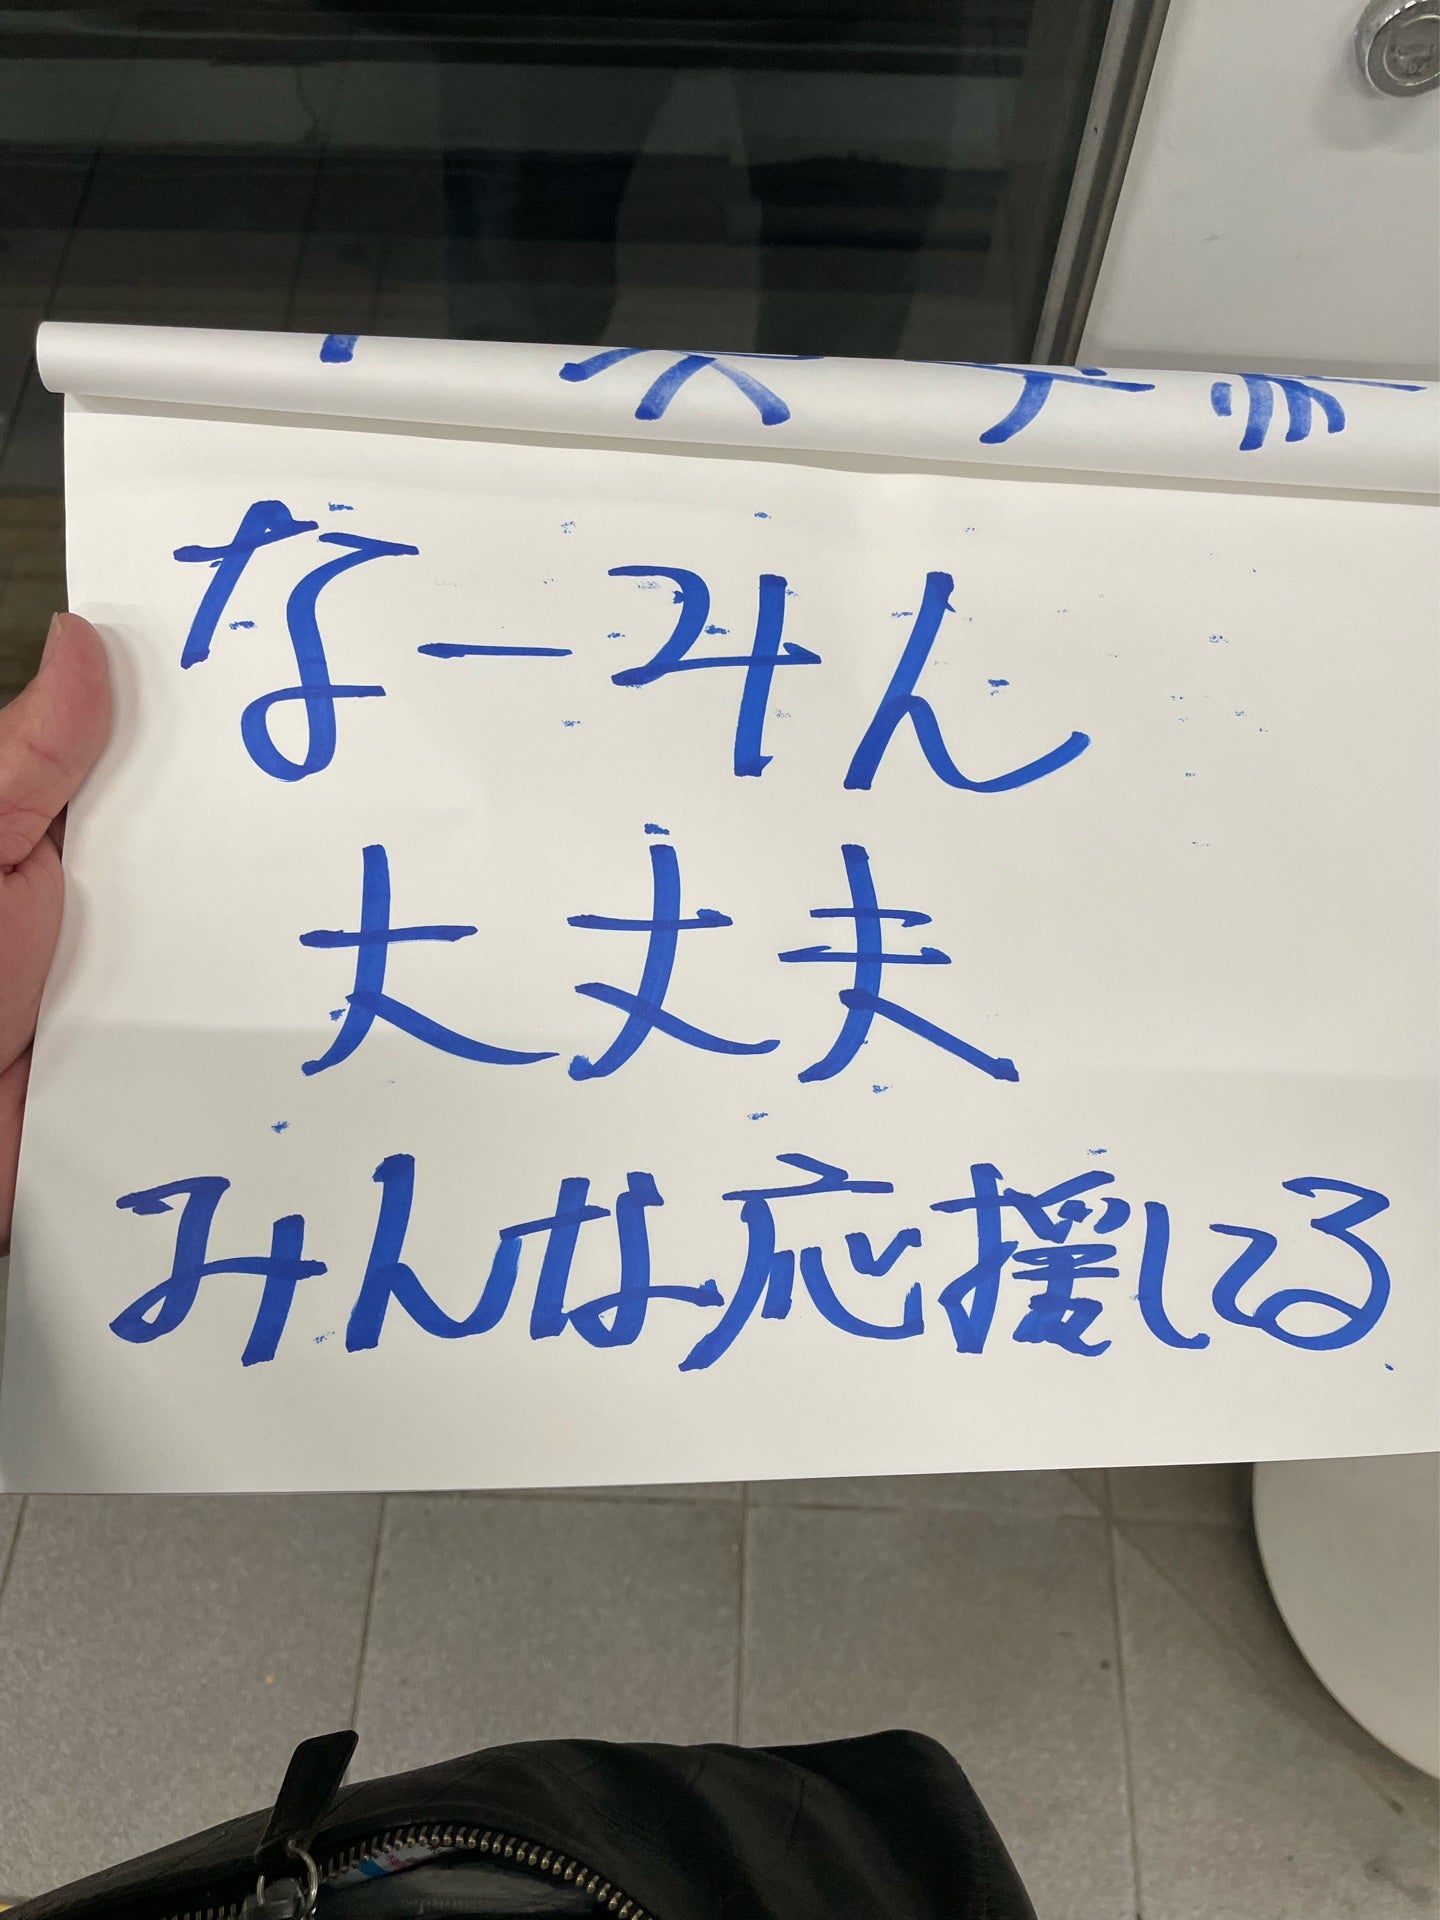 なーみん
大丈夫
みんな応援してる